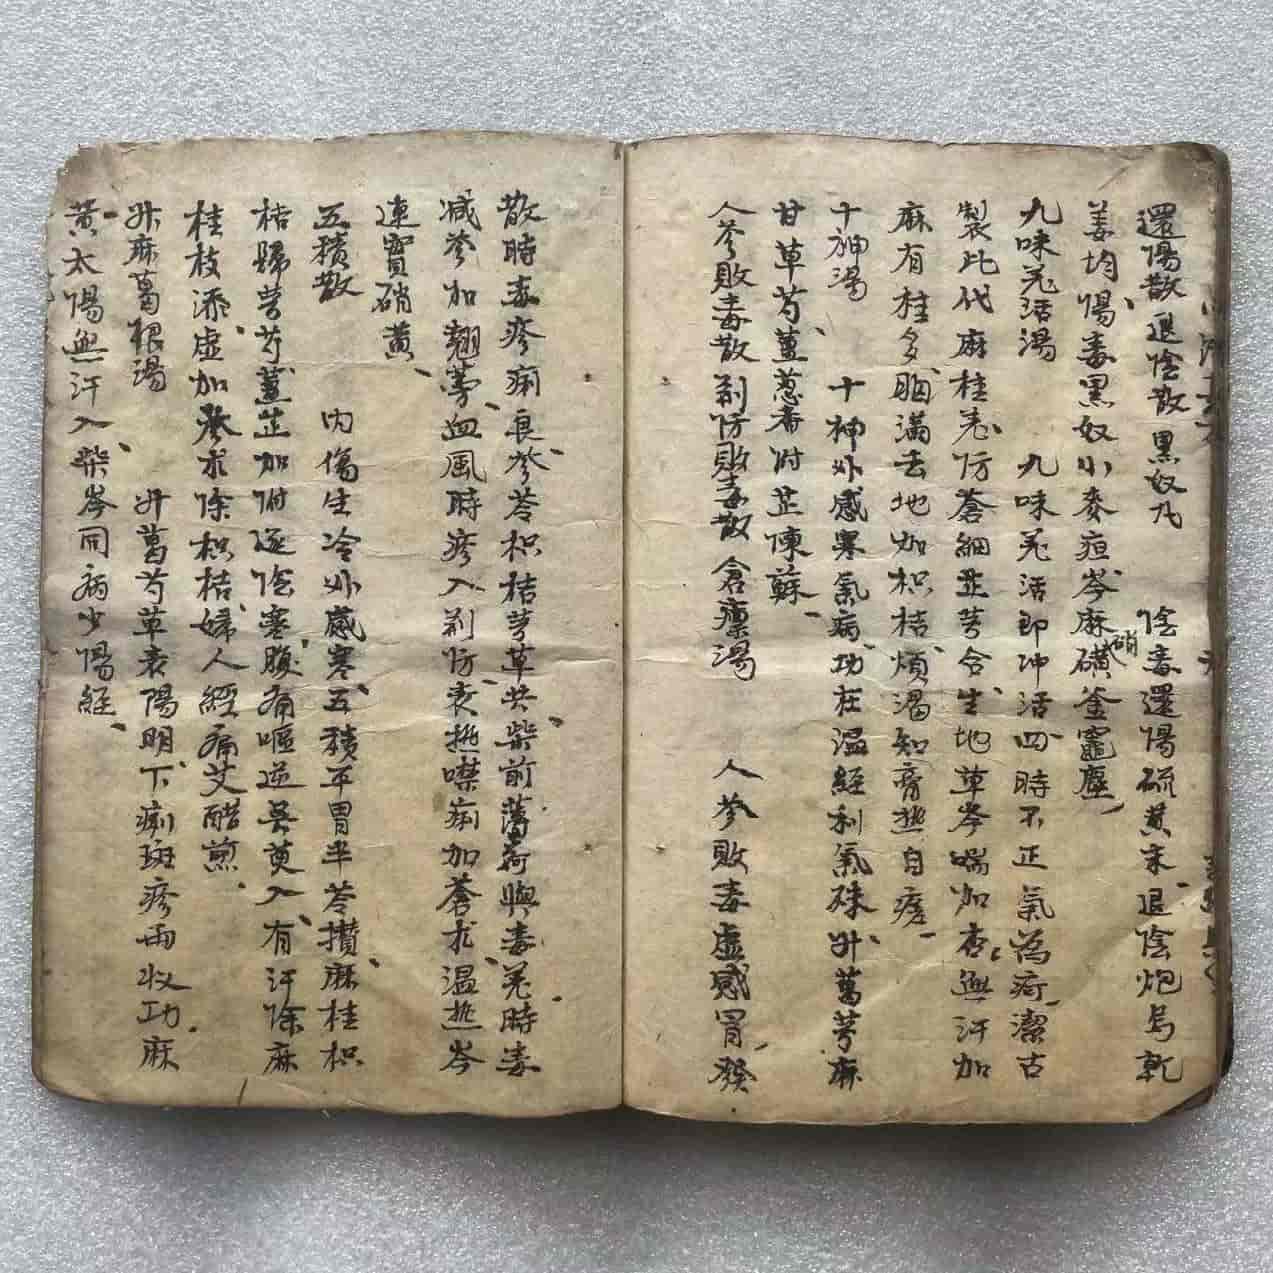 還陽散 退陰散 黑奴丸 陰毒還陽硫黃末退陰炮烏乾
姜均陽毒黑奴小麥疸芩麻硝磺釜竈塵
九味羌活湯 九味羌活即冲活四時不正氣為疴潔古
製此代麻桂羌防蒼細芷芎合生地草芩喘加杏無汗加
麻有桂多胸滿去地加枳桔煩渴知膏熱自瘥
十神湯 十神外感寒氣病功在溫經利氣殊升葛芎麻
甘草芍薑葱香附芷陳蘇
人參敗毒散 荊防敗毒散 倉廩湯 人參敗毒虛感冒發
散時毒疹痢良參苓枳桔芎草共柴前薄荷與毒羌時毒
減參加翹蒡血風時疹入荊防表熱噤痢加蒼朮溫熱芩
連實硝黃
五積散 內傷生冷外感寒五積平胃半苓攢麻桂枳
桔歸芎芍薑芷加附逐陰寒腹痛嘔逆吳萸入有汗除麻
桂枝添虛加參朮除枳桔婦人經痛艾醋煎
升麻葛根湯 升葛芍草表陽明下痢斑疹兩收功麻
黃太陽無汗入柴芩同病少陽經